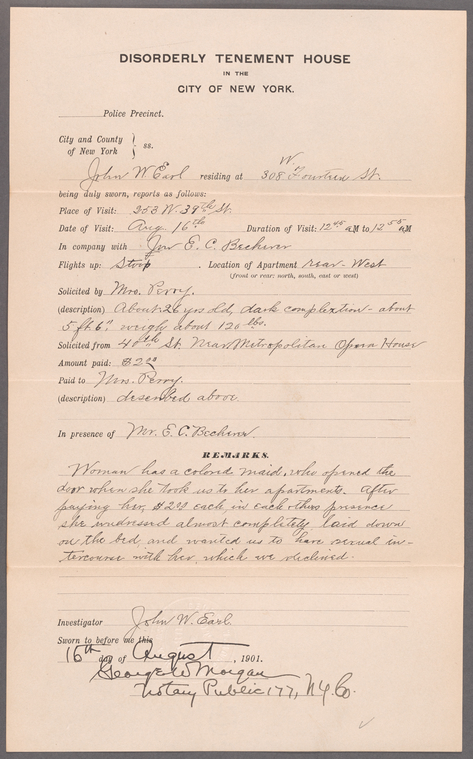 DISORDERLY TENEMENT HOUSE
IN THE
CITY OF NEW YORK.
Police Precinct.
City and County
of New York } ss.
John W Earl residing at 308 W. Fourteen St.
being duly sworn, reports as follows:
Place of Visit: 253 W. 39th St.
Date of Visit: Aug. 16th Duration of Visit: 12 45 AM to 12 55 AM
In company with E. C. Becherer
Flights up: Stoop . Location of Apartment rear - West
(front or rear: north, south, east or west)
Solicited by Mrs. Perry.
(description) About 26 yrs old, dark complextion - about
5 ft. 6" weighs about 120 lbs.
Solicited from 40th St. Near Metropolitan Opera House
Amount paid: $2 00
Paid to Mrs. Perry.
(description) described above.
In presence of Mr. E. C. Becherer.
REMARKS.
Woman has a colored maid, who opened the
door when she took us to her apartments. After
paying her, $2 00 each, in each others presence
she undressed almost completely, laid down
on the bed, and wanted us to have sexual in-
tercourse with her, which we declined.
Investigator John W. Earl
Sworn to before me this
16th day of August, 1901.
George W Morgan
Notary Public 177, N.Y. Co.